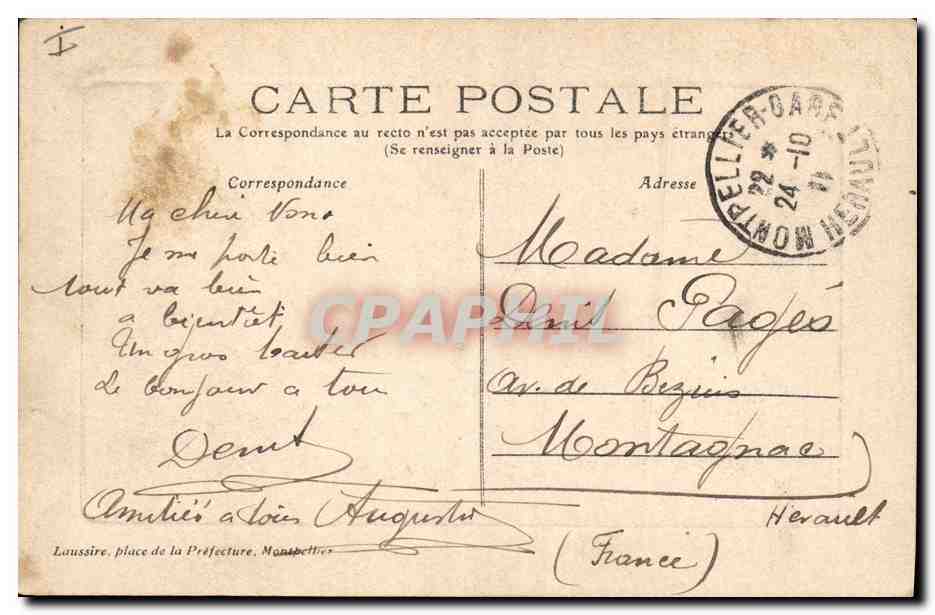 I
CARTE POSTALE
La Correspondance au recto n'est pas acceptée par tous les pays étrangers
(Se renseigner à la Poste)
Correspondance
Adresse
MONTPELLIER-GARE HERAULT
22 *
24 -10
11
Ma chère
Je me porte bien
tout va bien
a bientôt
Un gros baiser
Le bonjour a tous
Denis
Amitiés a tous Augustin
Madame
Denis Pagés
av. de Beziers
Montagnac
Herault
(France)
CPAPHIL
Laussire, place de la Préfecture, Montpellier